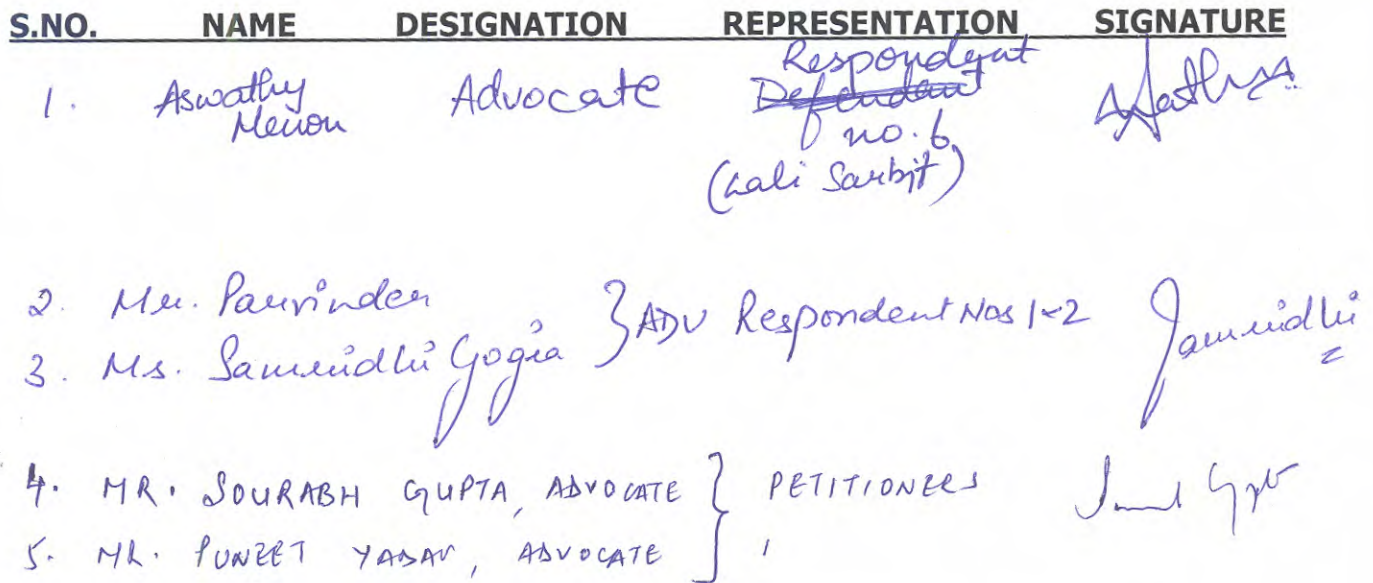 S.NO. NAME DESIGNATION REPRESENTATION SIGNATURE
1. Aswathy Advocate Respondent
Menon Defendant
no. 6
(Lali Sarbjit)
2. Mr. Parvinder } ADV Respondent Nos 1-2 Samridhi
3. Ms. Samridhi Gogia
4. MR. SOURABH GUPTA, ADVOCATE } PETITIONERS
5. MR. PUNEET YADAV, ADVOCATE